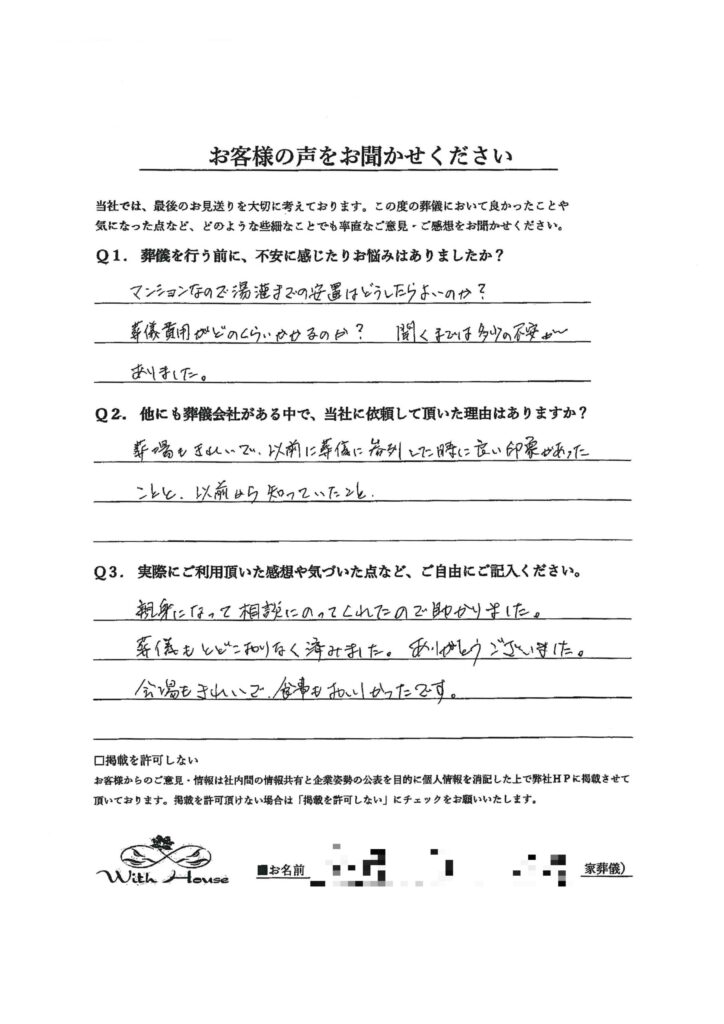 お客様の声をお聞かせください
当社では、最後のお見送りを大切に考えております。この度の葬儀において良かったことや
気になった点など、どのような些細なことでも率直なご意見・ご感想をお聞かせください。
Q1. 葬儀を行う前に、不安に感じたりお悩みはありましたか？
マンションなので湯灌までの安置はどうしたらよいのか？
葬儀費用がどのくらいかかるのか？ 聞くまでは多少の不安が
ありました。
Q2. 他にも葬儀会社がある中で、当社に依頼して頂いた理由はありますか？
葬場もきれいで、以前に葬儀に参列した時に良い印象があった
ことと、以前から知っていたこと.
Q3. 実際にご利用頂いた感想や気づいた点など、ご自由にご記入ください。
親身になって相談にのってくれたので助かりました。
葬儀もとどこおりなく済みました。ありがとうございました。
会場もきれいで、食事もおいしかったです。
□掲載を許可しない
お客様からのご意見・情報は社内間の情報共有と企業姿勢の公表を目的に個人情報を消記した上で弊社HPに掲載させて
頂いております。掲載を許可頂けない場合は「掲載を許可しない」にチェックをお願いいたします。
With House
■お名前 家葬儀）